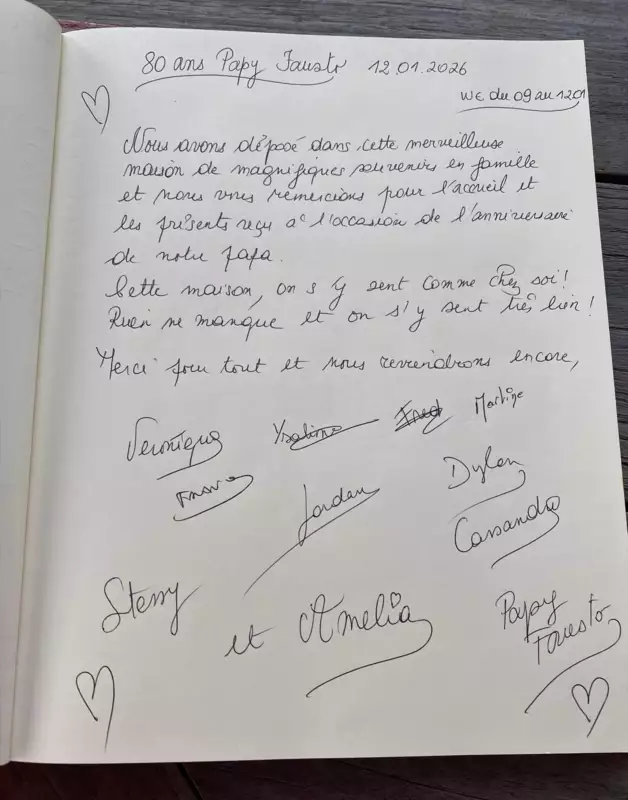 80 ans Papy Fausto 12.01.2026
WE du 09 au 1201
Nous avons déposé dans cette merveilleuse
maison de magnifiques souvenirs en famille
et nous vous remercions pour l'accueil et
les présents reçu à l'occasion de l'anniversaire
de notre papa.
Cette maison, on s'y sent comme chez soi!
Rien ne manque et on s'y sent très bien!
Merci pour tout et nous reviendrons encore,
Véronique Fred Martine
Jordan Dylan
Cassandra
Stessy et Amelia Papy
Fausto